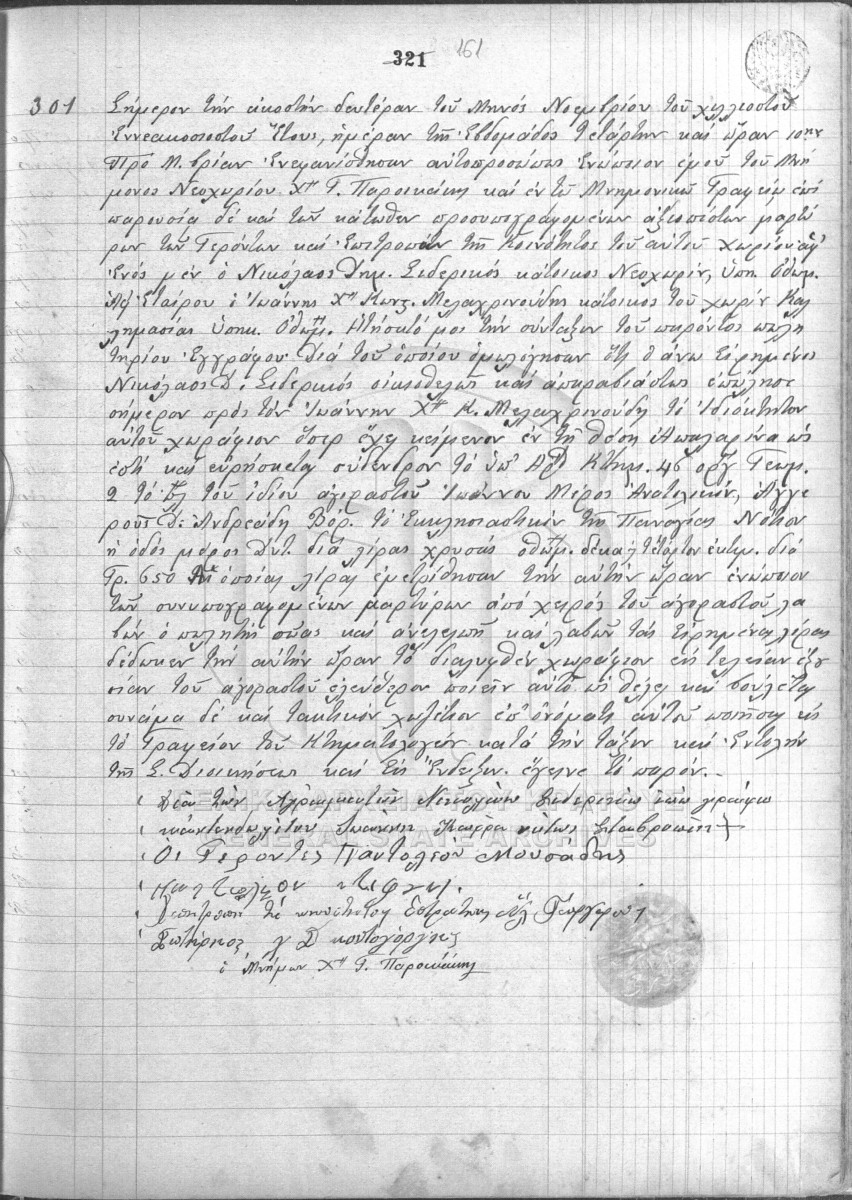 321 161
301 Σήμερον τὴν εἰκοστὴν δευτέραν τοῦ Μηνὸς Νοεμβρίου τοῦ χιλλιοστοῦ
Ἐννεακοσιοστοῦ Ἔτους, ἡμέραν τῆς Ἑβδομάδος τετάρτην καὶ ὥραν 10ην
Πρὸ Μ.βρίαν Ἐνεφανίσθησαν αὐτοπροσώπως Ἐνώπιον ἐμοῦ τοῦ Μνή
μονος Νεοχωρίου Χ'' Γ. Παροικάκη καὶ ἐν τῷ Μνημονικῷ Γραφείῳ ἐπὶ
παρουσίᾳ δὲ καὶ τῶν κάτωθεν προσυπογραφομένων ἀξιοπίστων μαρτύ
ρων τῶν Γερόντων καὶ Ἐπιτροπῶν τῆς Κοινότητος τοῦ αὐτοῦ χωρίου ἀφ'
Ἑνὸς μὲν ὁ Νικόλαος Δημ. Σιδερικὸς κάτοικος Νεοχωρίου, ὑπη. Ὀθωμ.
Ἀφ' Ἑταίρου ὁ Ἰωάννης Χ'' Κωνς. Μελαχρινούδης κάτοικος τοῦ χωρίου Καλ
λημασίας ὑπηκ. Ὀθωμ. Ἐζήσατό μοι τὴν σύνταξιν τοῦ παρόντος πωλη
τηρίου Ἐγγράφου. Διὰ τοῦ ὁποίου ὁμολόγησαν ὅτι ὁ ἄνω Εἰρημένος
Νικόλαος Δ. Σιδερικὸς οἰκιοθελῶς καὶ ἀπαραβιάστως ἐπώλησε
σήμερον πρὸς τὸν Ἰωάννην Χ'' Κ. Μελαχρινούδη τὸ Ἰδιόκτητον
αὐτοῦ χωράφιον ὅπερ ἔχει κείμενον ἐν τῇ θέσῃ ὡς
ἐστὶ καὶ εὑρήσκεται σύδενδρον τὸ ὑπ' Ἀρ. Κτημ. 46 Γεωμ.
2 τὸ τοῦ ἰδίου ἀγοραστοῦ Ἰωάννου Μέρος Ἀνατολικὸν, Ἀγγε
ροῦς Δ. Ἀνδρεάδη Βόρ. τὸ Ἐκκλησιαστικὸν τῆς Παναγίας Νότιον
ἡ ὁδὸς μέρος Δυτ. διὰ λίρας χρυσᾶς ὀθωμ. δέκα
Γρ. 650 ὁποίας λίρας ἐμετρίθησαν τὴν αὐτὴν ὥραν ἐνώπιον
τῶν συνυπογραφομένων μαρτύρων ἀπὸ χειρὸς τοῦ ἀγοραστοῦ λα
βὼν ὁ πωλητὴς σῶας καὶ ἀνελλιπῆ καὶ λαβὼν τὰς Εἰρημένας λίρας
δέδωκεν τὴν αὐτὴν ὥραν τὸ διαληφθὲν χωράφιον εἰς τελείαν ἐξου
σίαν τοῦ ἀγοραστοῦ ἐλεύθερον ποιεῖν αὐτὸ ὡς θέλει καὶ βούλεται
συνάμα δὲ καὶ τακτικὸν χωζέτιον ἐπ' ὀνόματι αὐτοῦ ποιῆσαι εἰς
τὸ Γραφεῖον τοῦ Κτηματολογίου κατὰ τὴν τάξιν καὶ Ἐντολὴν
τῆς Σ. Διοικήσεως καὶ Εἰς Ἔνδειξιν ἔγεινε τὸ παρόν.
Ἰωάννης
Οἱ Γέροντες Παντολέον Μουσάδης
Σωτήριος
ὁ Μνήμων Χ'' Γ. Παροικάκης
ΓΕΝΙΚΑ ΑΡΧΕΙΑ ΤΟΥ ΚΡΑΤΟΥΣ
GENERAL STATE ARCHIVES